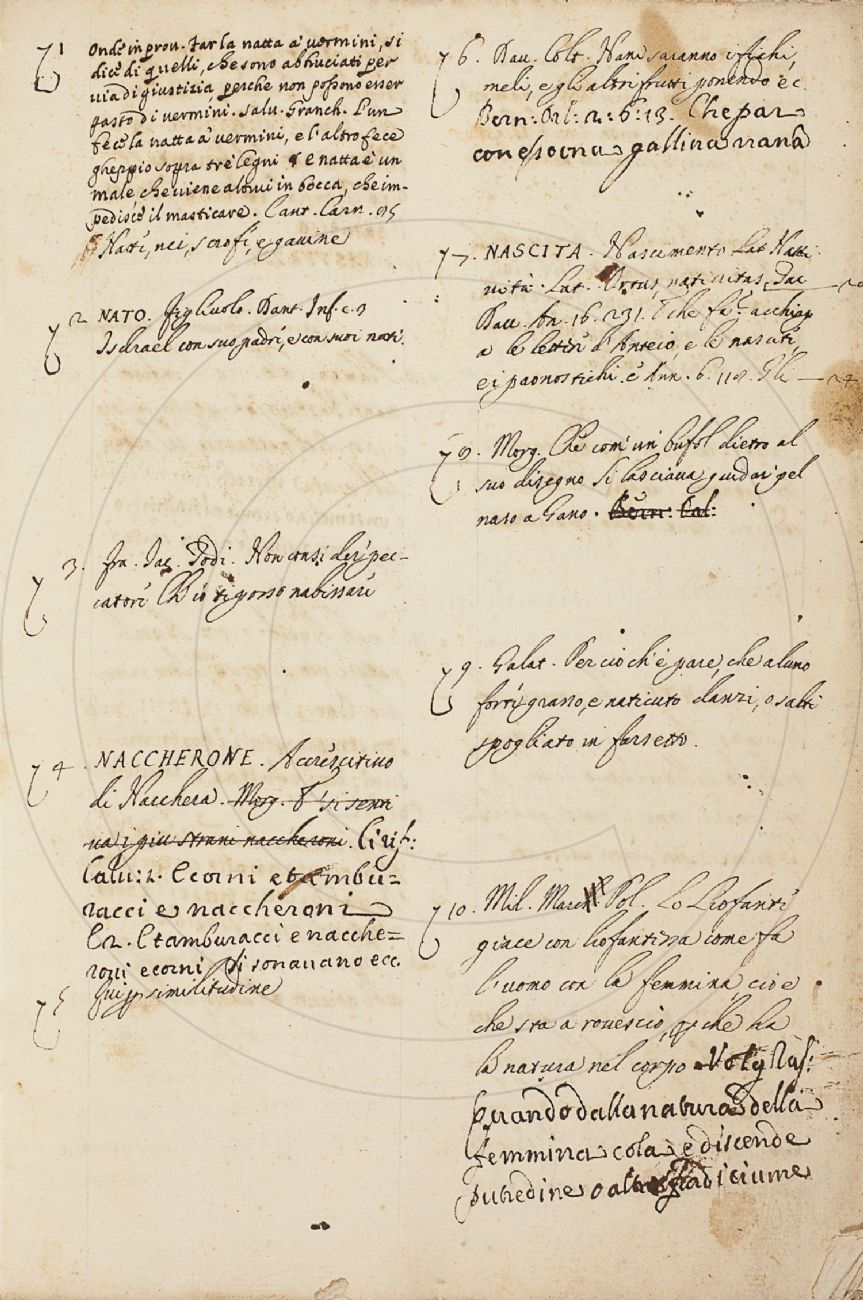 1 Onde in prov. Far la natta a' vermini, si
dice di quelli, che sono abbruciati per
via di giustizia perche non possono esser
pasto di vermini. Salv. Granch. L'un
fece la natta a' vermini, e l'altro fece
gheppio sopra tre legni e natta è un
male, che viene altrui in bocca, che im-
pedisce il masticare. Cant. Carn. 95
Natte, nei, scrofi, e gavine
2 NATO. Figliuolo. Dant. Inf. c. 4
Isdrael con suo padre, e con suoi nati.
3. Fra. Iac. Todi. Non considerè pec-
catore Che io ti posso nabissare
4. NACCHERONE. Accrescitivo
di Nacchera. Morg. E si senti
va i più strani naccheroni. Cirif.
Calv: 2. E corni e tambu=
racci e naccheroni
E 2. E tamburacci e nacche=
roni e corni si sonavano ecc.
5 Qui p similitudine
6. Dav. Colt. Nani saranno i fichi,
meli, e gli altri frutti ponendo ec.
Bern: Orl: 2: 6: 13. Che par
con esso una gallina nana
7. NASCITA. Nascimento Lat Nati
vità. Lat. Ortus, nativitas, Tac
Dav. An. 16. 231. E che fa? acchiap
a le lettere d'Anteio, e le nascite,
e i pronostichi. e Ann. 6. 118. Gli
8. Morg. Che com' un bufol dietro al
suo disegno Si lasciava guidar pel
naso a Gano. Bern: Cal:
9. Galat. Percioch' è pare, che alcuno
forte grasso, e naticuto danzi, o salti
spogliato in farsetto.
10. Mil. Marc. Pol. Lo Liofante
giace con liofantessa come fa
l'uomo con la femmina, cioè
che sta a rovescio, p che ha
la natura nel corpo Volg Ras:
quando dalla natura della
femmina cola e discende
putredine o altro